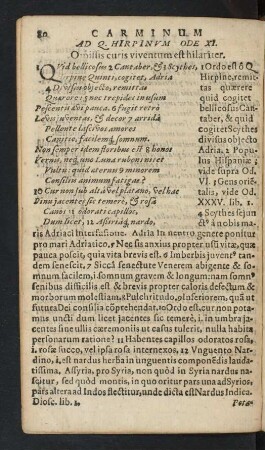 80 CARMINUM
AD Q. HIRPINVM ODE XI.
Omissis curis viventum est hilariter.
1 Quid bellicosus 2 Cantaber, & 3 Scythes,
Hirpine Quinti, cogitet, Adria
4 Divisus objecto, remittas
Quærere: 5 nec trepides in usum
Poscentis ævi pauca. 6 fugit retro
Levis juventas, & decor 7 aridâ
Pellente lascivos amores
Canitie, facilemq́; somnum.
Non semper idem floribus est 8 honor
Vernis, neq́; uno Luna rubens nitet
Vultu: quid æternis 9 minorem
Consiliis animum fatigas?
10 Cur non sub altâ vel platano, vel hac
Pinu jacentes sic temerè, & rosâ
Canos 11 odorati capillos,
Dum licet, 12 Assyriâq́; nardo,
1 Ordo est ô Q
Hirpine, remittas
quærere
quid cogitet
bellicosus Cantaber,
& quid
cogitet Scythes
divisus objecto
Adria. 2 Populus
Hispaniæ:
vide sup. Od.
VI. 3 Gens orientalis,
vide Od.
XXXV. lib. 1.
4 Scythes sejunctº
à nobis maris
Adriaci interfusione. Adria in neutro genere ponitur
pro mari Adriatico. 5 Nec sis anxius propter usũ vitæ, quæ
pauca poscit, quia vita brevis est. 6 Imberbis juvenṫ tandem
senescit, 7 Siccâ senectute Venerem abigente & somnum
facilem, i somnum gravem & longum. nam somº
senibus difficilis est & brevis propter caloris defectum &
morborum molestiam. 8 Pulchritudo. 9 Inferiorem. quia ut
futura Dei consiliis cõprehendat. 10 Ordo est. cur non potamus
uncti dum licet jacentes sic temerè, i. in umbra jacentes
sine ullis cæremoniis ut casus tulerit, nulla habita
personarum ratione? 11 Habentes capillos odoratos rosa,
i. rosæ succo, vel ipsa rosa internexos, 12 Unguento Nardino,
i. est nardus herba in unguentis componẽdis laudatissima.
Assyria, pro Syria, non quòd in Syria nardus nascitur,
sed quòd montis, in quo oritur pars una ad Syrios,
pars altera ad Indos flectitur, unde dicta est Nardus Indica.
Diosc. lib. 1.
Pota-